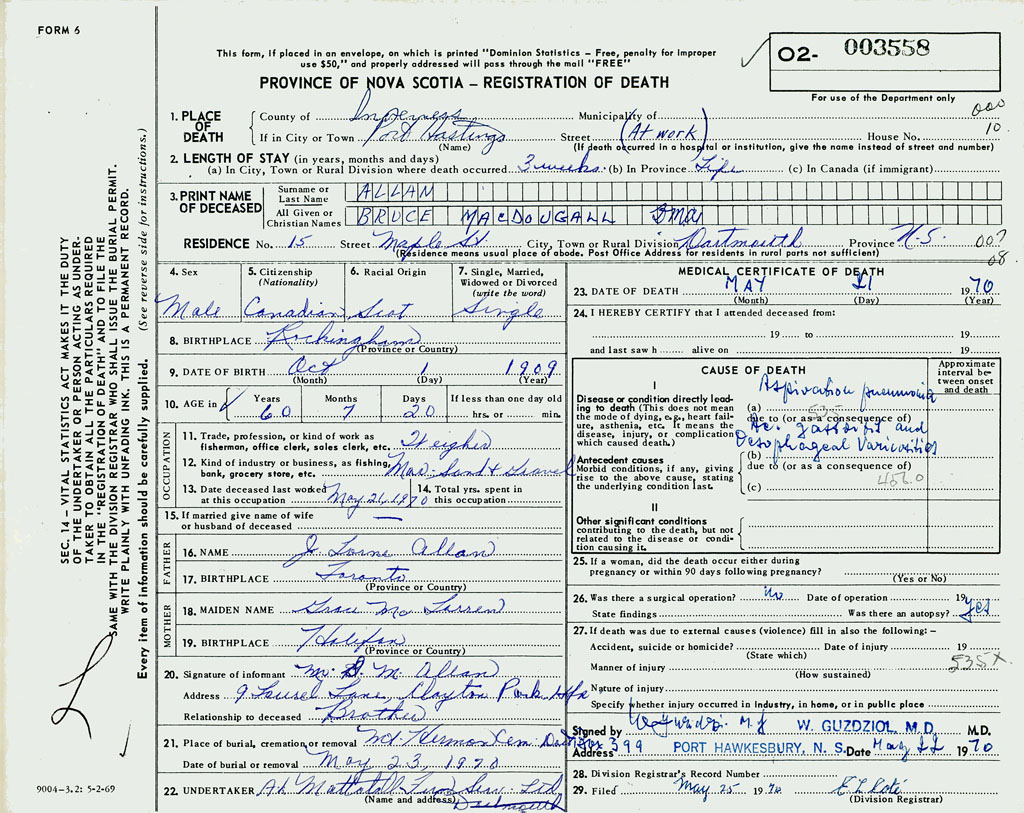 FORM 6
This form, if placed in an envelope, on which is printed "Dominion Statistics – Free, penalty for improper
use $50," and properly addressed will pass through the mail "FREE"
PROVINCE OF NOVA SCOTIA – REGISTRATION OF DEATH
O2- 003558
For use of the Department only
000
10.
1. PLACE OF DEATH
County of Inverness Municipality of
If in City or Town Port Hastings Street (At work) House No.
(Name) (If death occurred in a hospital or institution, give the name instead of street and number)
2. LENGTH OF STAY (in years, months and days)
(a) In City, Town or Rural Division where death occurred 3 weeks (b) In Province Life (c) In Canada (if immigrant)
3. PRINT NAME OF DECEASED
Surname or Last Name ALLAN
All Given or Christian Names BRUCE MACDOUGALL
RESIDENCE No. 15 Street Maple St. City, Town or Rural Division Dartmouth Province N.S.
(Residence means usual place of abode. Post Office Address for residents in rural parts not sufficient)
007
08
4. Sex
Male
5. Citizenship (Nationality)
Canadian
6. Racial Origin
Scot
7. Single, Married, Widowed or Divorced (write the word)
Single
8. BIRTHPLACE Rockingham
(Province or Country)
9. DATE OF BIRTH Oct 1 1909
(Month) (Day) (Year)
10. AGE in Years Months Days If less than one day old
60 7 20 hrs. or min.
OCCUPATION
11. Trade, profession, or kind of work as
fisherman, office clerk, sales clerk, etc. Weigher
12. Kind of industry or business, as fishing,
bank, grocery store, etc. Mar. Sand & Gravel
13. Date deceased last worked at this occupation May 21, 1970
14. Total yrs. spent in this occupation
15. If married give name of wife
or husband of deceased —
FATHER
16. NAME J. Lorne Allan
17. BIRTHPLACE Toronto
(Province or Country)
MOTHER
18. MAIDEN NAME Grace McLarren
19. BIRTHPLACE Halifax
(Province or Country)
20. Signature of informant Mr. M. Allan
Address 9 Laurel Lane, Clayton Park Hfx
Relationship to deceased Brother
21. Place of burial, cremation or removal Mt Hermon Cem.
Date of burial or removal May 23, 1970
22. UNDERTAKER A.L. Mattatall Fun. Serv. Ltd
(Name and address) Dartmouth
MEDICAL CERTIFICATE OF DEATH
23. DATE OF DEATH MAY 21 1970
(Month) (Day) (Year)
24. I HEREBY CERTIFY that I attended deceased from:
19 to 19
and last saw h alive on 19
CAUSE OF DEATH
Approximate interval between onset and death
I
Disease or condition directly leading to death (This does not mean the mode of dying, e.g., heart failure, asthenia, etc. It means the disease, injury, or complication which caused death.)
(a) Aspiration pneumonia
535
due to (or as a consequence of)
Ac. gastritis and
Oesophageal Varicosities
Antecedent causes
Morbid conditions, if any, giving rise to the above cause, stating the underlying condition last.
(b)
due to (or as a consequence of)
(c) 456.0
II
Other significant conditions
contributing to the death, but not related to the disease or condition causing it.
25. If a woman, did the death occur either during
pregnancy or within 90 days following pregnancy?
(Yes or No)
26. Was there a surgical operation? no Date of operation 19
State findings Was there an autopsy? yes
27. If death was due to external causes (violence) fill in also the following: –
Accident, suicide or homicide? Date of injury 19
(State which)
535X
Manner of injury
(How sustained)
Nature of injury
Specify whether injury occurred in industry, in home, or in public place
Signed by W. GUZDZIOL, M.D. M.D.
Address Box 399 PORT HAWKESBURY, N. S. Date May 22 1970
28. Division Registrar's Record Number
29. Filed May 25 1970
(Division Registrar)
SEC. 14 – VITAL STATISTICS ACT MAKES IT THE DUTY
OF THE UNDERTAKER OR PERSON ACTING AS UNDER-
TAKER TO OBTAIN ALL THE PARTICULARS REQUIRED
IN THE "REGISTRATION OF DEATH" AND TO FILE THE
SAME WITH THE DIVISION REGISTRAR WHO SHALL ISSUE THE BURIAL PERMIT.
WRITE PLAINLY WITH UNFADING INK. THIS IS A PERMANENT RECORD.
Every item of information should be carefully supplied. (See reverse side for instructions.)
9004-3.2: 5-2-69